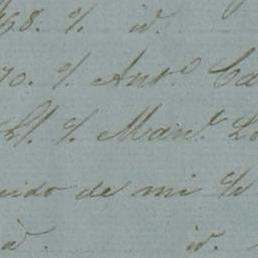 68. %. id.
70. %. Anto. Ca
%. Manl. Lo
uido de mi %
id. id.